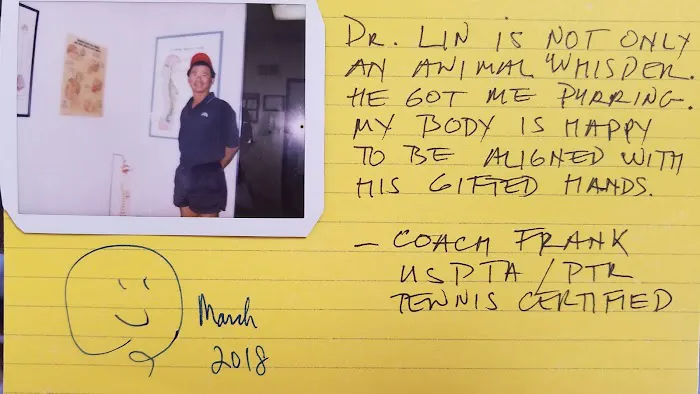 DR. LIN IS NOT ONLY
AN ANIMAL WHISPER.
HE GOT ME PURRING.
MY BODY IS HAPPY
TO BE ALIGNED WITH
HIS GIFTED HANDS.
— COACH FRANK
USPTA / PTR
TENNIS CERTIFIED
March
2018